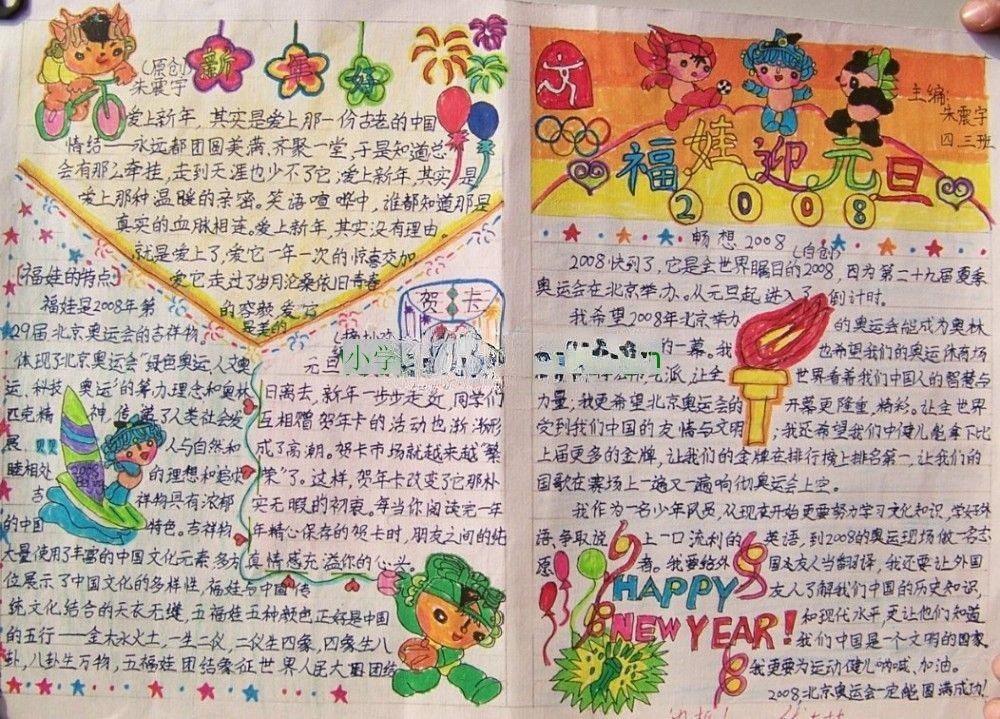 新年好
(原创)
朱震宇
爱上新年，其实是爱上那一份古老的中国
情结——永远都团圆美满、齐聚一堂，于是知道总
会有那么牵挂，走到天涯也少不了它；爱上新年，其实是
爱上那种温暖的亲密。笑语喧哗中，谁都知道那是
真实的血脉相连。爱上新年，其实没有理由。
就是爱上了，爱它一年一次的惊喜交加
爱它走过了岁月沧桑依旧青春
的容颜，爱它
是美的
[福娃的特点]
福娃是2008年第
29届北京奥运会的吉祥物。
体现了北京奥运会“绿色奥运、人文奥
运、科技奥运”的筹办理念和奥林
匹克精神，传递了人类社会发
展
人与自然和
睦相处的理想和意愿
吉祥物具有浓郁
的中国特色。吉祥物
大量使用了丰富的中国文化元素，多方
位展示了中国文化的多样性，福娃与中国传
统文化结合的天衣无缝，五福娃五种颜色正好是中国
的五行——金木水火土，一生二仪，二仪生四象，四象生八
卦，八卦生万物，五福娃团结象征世界人民大团结
贺卡
元旦
小学
日离去，新年一步步走近，同学们
互相赠贺年卡的活动也渐渐形
成了高潮。贺卡市场就越来越“繁
荣”了。这样，贺年卡改变了它那朴
实无暇的初衷。每当你阅读完一年
年精心保存的贺卡时，朋友之间的纯
真情感充溢你的心头。
主编:
朱震宇
四三班
福娃迎元旦
2008
畅想2008
(自创)
2008快到了，它是全世界瞩目的2008，因为第二十九届夏季
奥运会在北京举办。从元旦起进入了倒计时。
我希望2008年北京举办的奥运会能成为奥林
的一幕。我也希望我们的奥运
派，让全世界看着我们中国人的智慧与
力量，我更希望北京奥运会的开幕更隆重，精彩。让全世界
受到我们中国的友情与文明，我还希望我们中健儿能拿下比
上届更多的金牌，让我们的金牌在排行榜上排名第一，让我们的
国歌在赛场上一遍又一遍响彻奥运会上空。
我作为一名少年队员，从现在开始更要努力学习文化知识，学好外
语，争取说上一口流利的英语，到2008的奥运现场做一名志
愿者。我要给外国友人当翻译，我还要让外国
友人了解我们中国的历史知识，
和现代水平，更让他们知道
我们中国是一个文明的国家。
我更要为运动健儿呐喊、加油。
2008北京奥运会一定能圆满成功！
HAPPY
NEW YEAR!